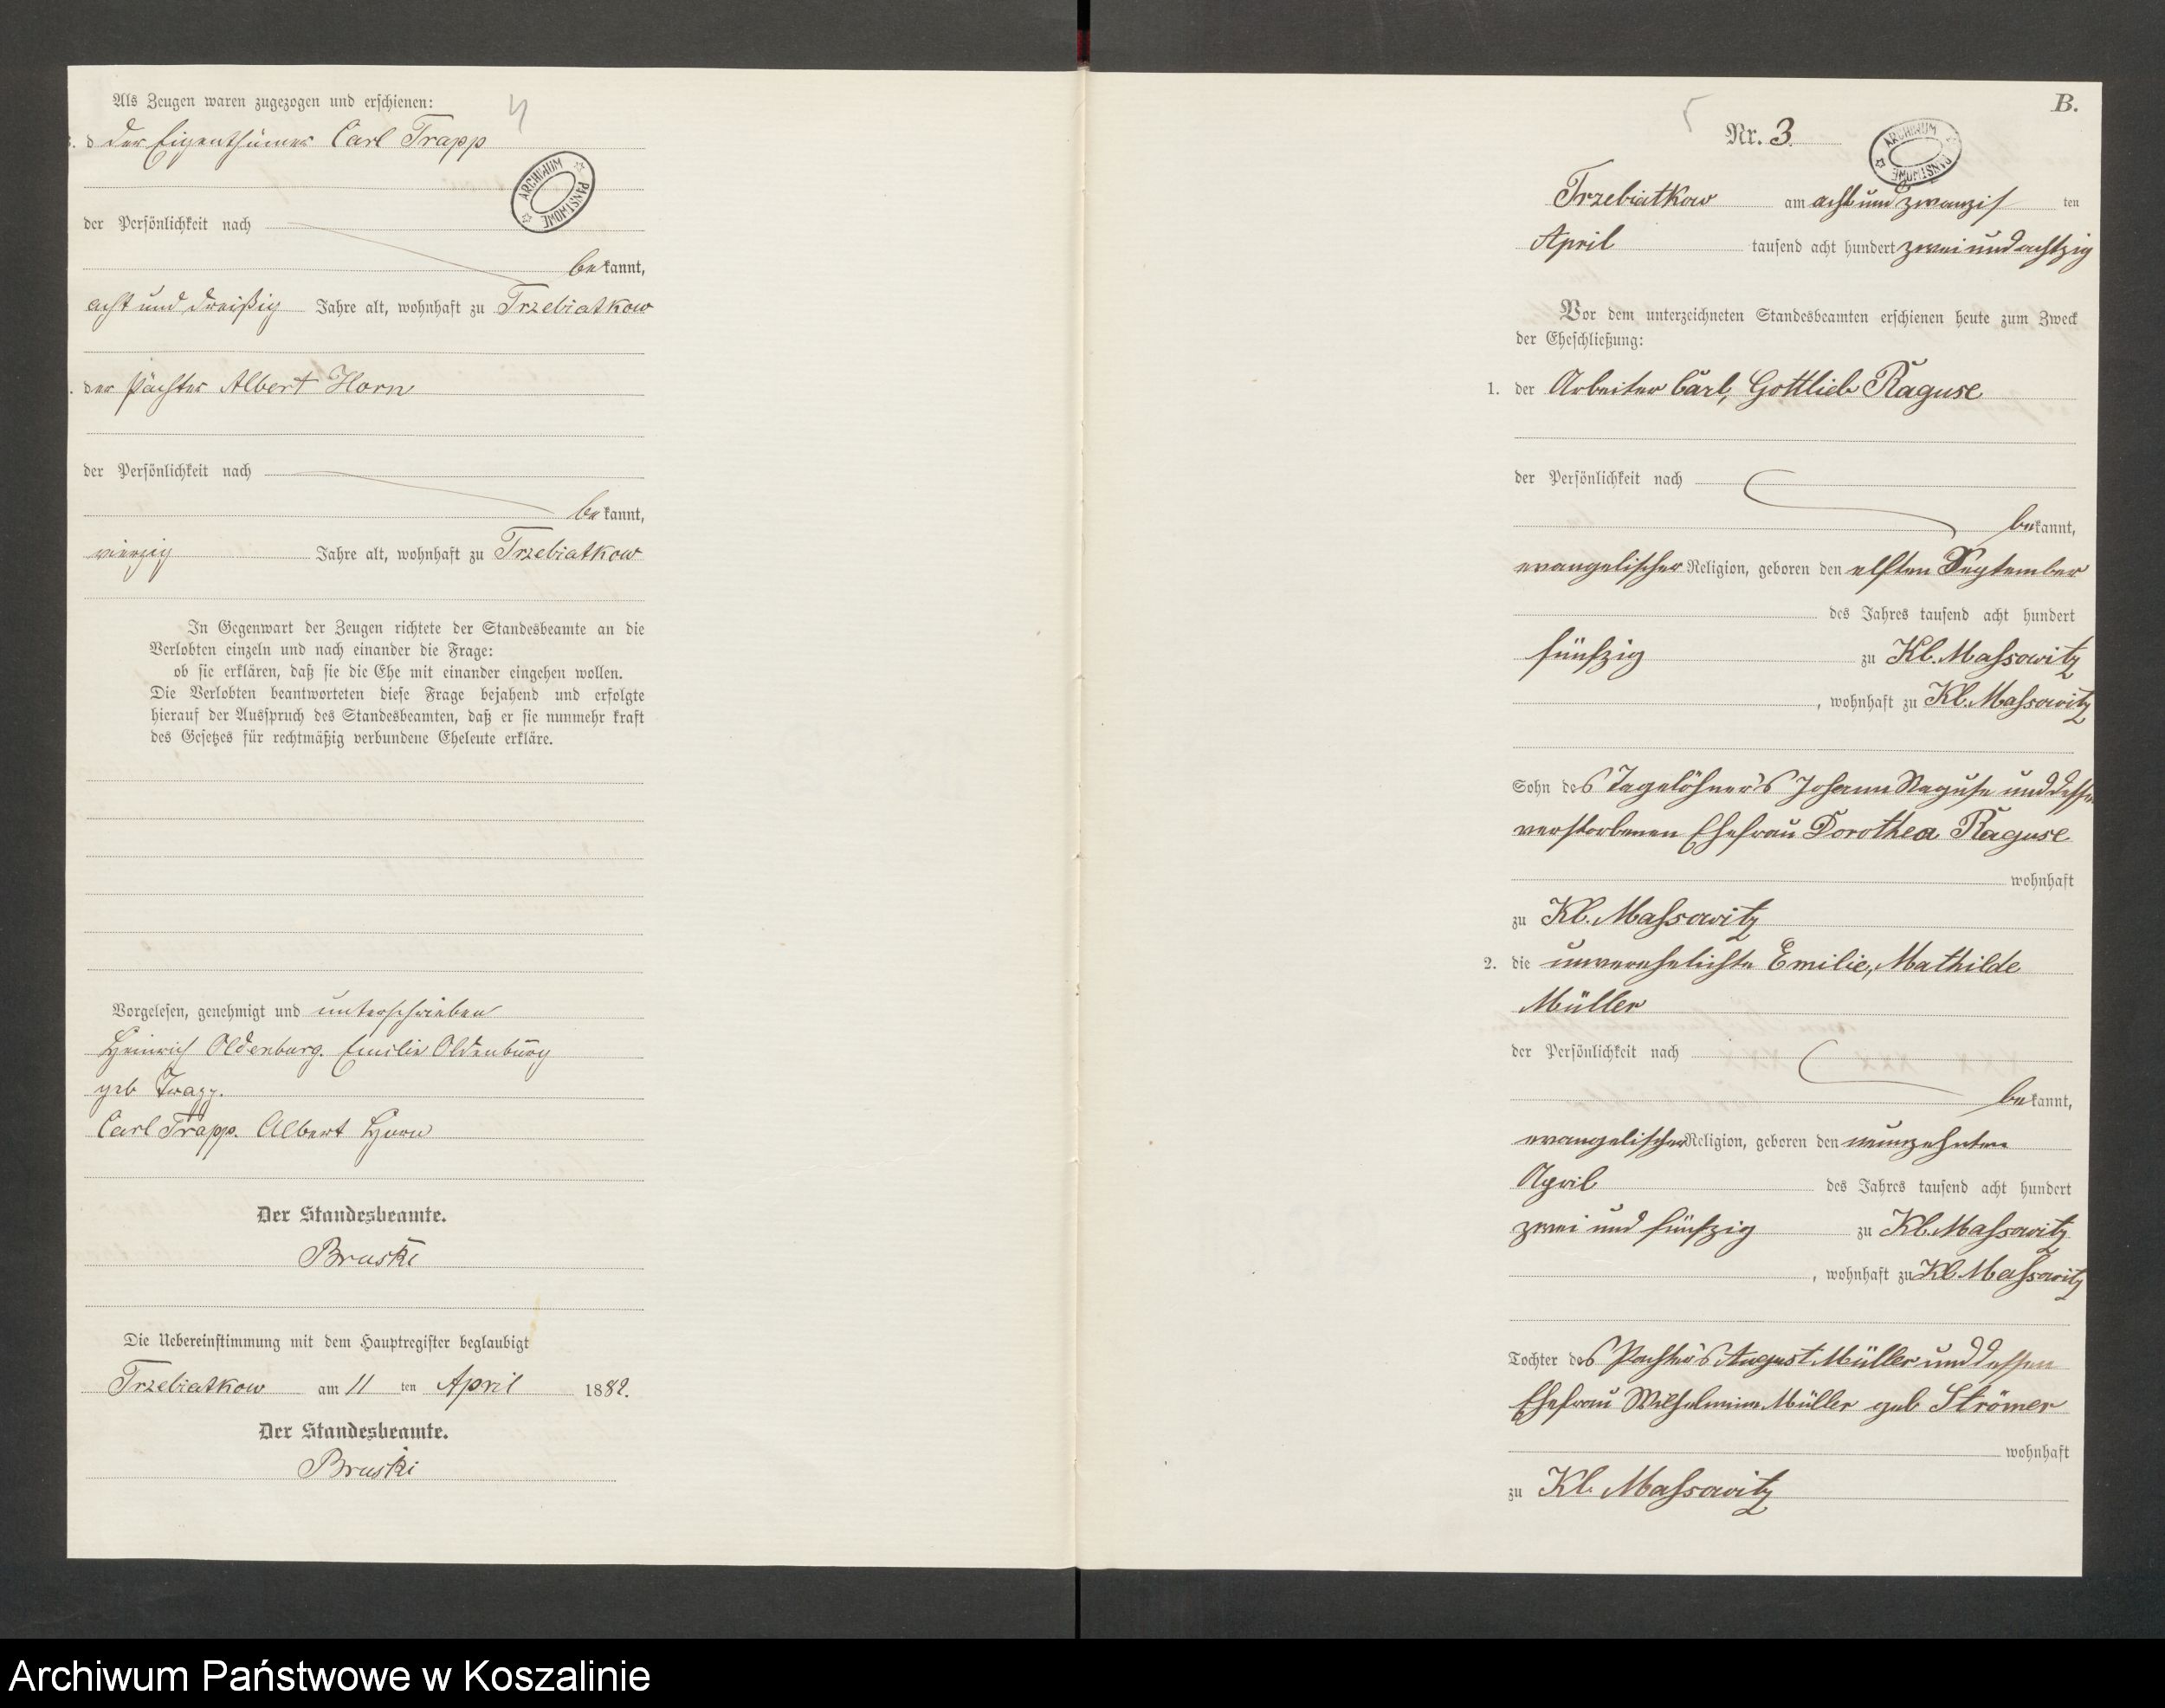 Als Zeugen waren zugezogen und erschienen:
4
3. d der Eigenthümer Carl Trapp
ARCHIWUM PAŃSTWOWE
der Persönlichkeit nach
bekannt,
acht und dreißig Jahre alt, wohnhaft zu Trzebiatkow
. der Pächter Albert Horn
der Persönlichkeit nach
bekannt,
vierzig Jahre alt, wohnhaft zu Trzebiatkow
In Gegenwart der Zeugen richtete der Standesbeamte an die
Verlobten einzeln und nach einander die Frage:
ob sie erklären, daß sie die Ehe mit einander eingehen wollen.
Die Verlobten beantworteten diese Frage bejahend und erfolgte
hierauf der Ausspruch des Standesbeamten, daß er sie nunmehr kraft
des Gesetzes für rechtmäßig verbundene Eheleute erkläre.
Vorgelesen, genehmigt und unterschrieben
Heinrich Oldenburg. Emilie Oldenburg
geb Trapp.
Carl Trapp. Albert Horn
Der Standesbeamte.
Bruski
Die Uebereinstimmung mit dem Hauptregister beglaubigt
Trzebiatkow am 11 ten April 1882.
Der Standesbeamte.
Bruski
B.
5
Nr. 3.
ARCHIWUM PAŃSTWOWE
Trzebiatkow am acht und zwanzig ten
April tausend acht hundert zwei und achtzig
Vor dem unterzeichneten Standesbeamten erschienen heute zum Zweck
der Eheschließung:
1. der Arbeiter Carl, Gottlieb Raguse
der Persönlichkeit nach
bekannt,
evangelischer Religion, geboren den elften September
des Jahres tausend acht hundert
fünfzig zu Kl. Massowitz
, wohnhaft zu Kl. Massowitz
Sohn des Tagelöhner's Johann Raguse und dessen
verstorbenen Ehefrau Dorothea Raguse
wohnhaft
zu Kl. Massowitz
2. die unverehelichte Emilie, Mathilde
Müller
der Persönlichkeit nach
bekannt,
evangelischer Religion, geboren den neunzehnten
April des Jahres tausend acht hundert
zwei und fünfzig zu Kl. Massowitz
, wohnhaft zu Kl. Massowitz
Tochter des Pächter's August Müller und dessen
Ehefrau Wilhelmine Müller geb Strömer
wohnhaft
zu Kl. Massowitz
Archiwum Państwowe w Koszalinie